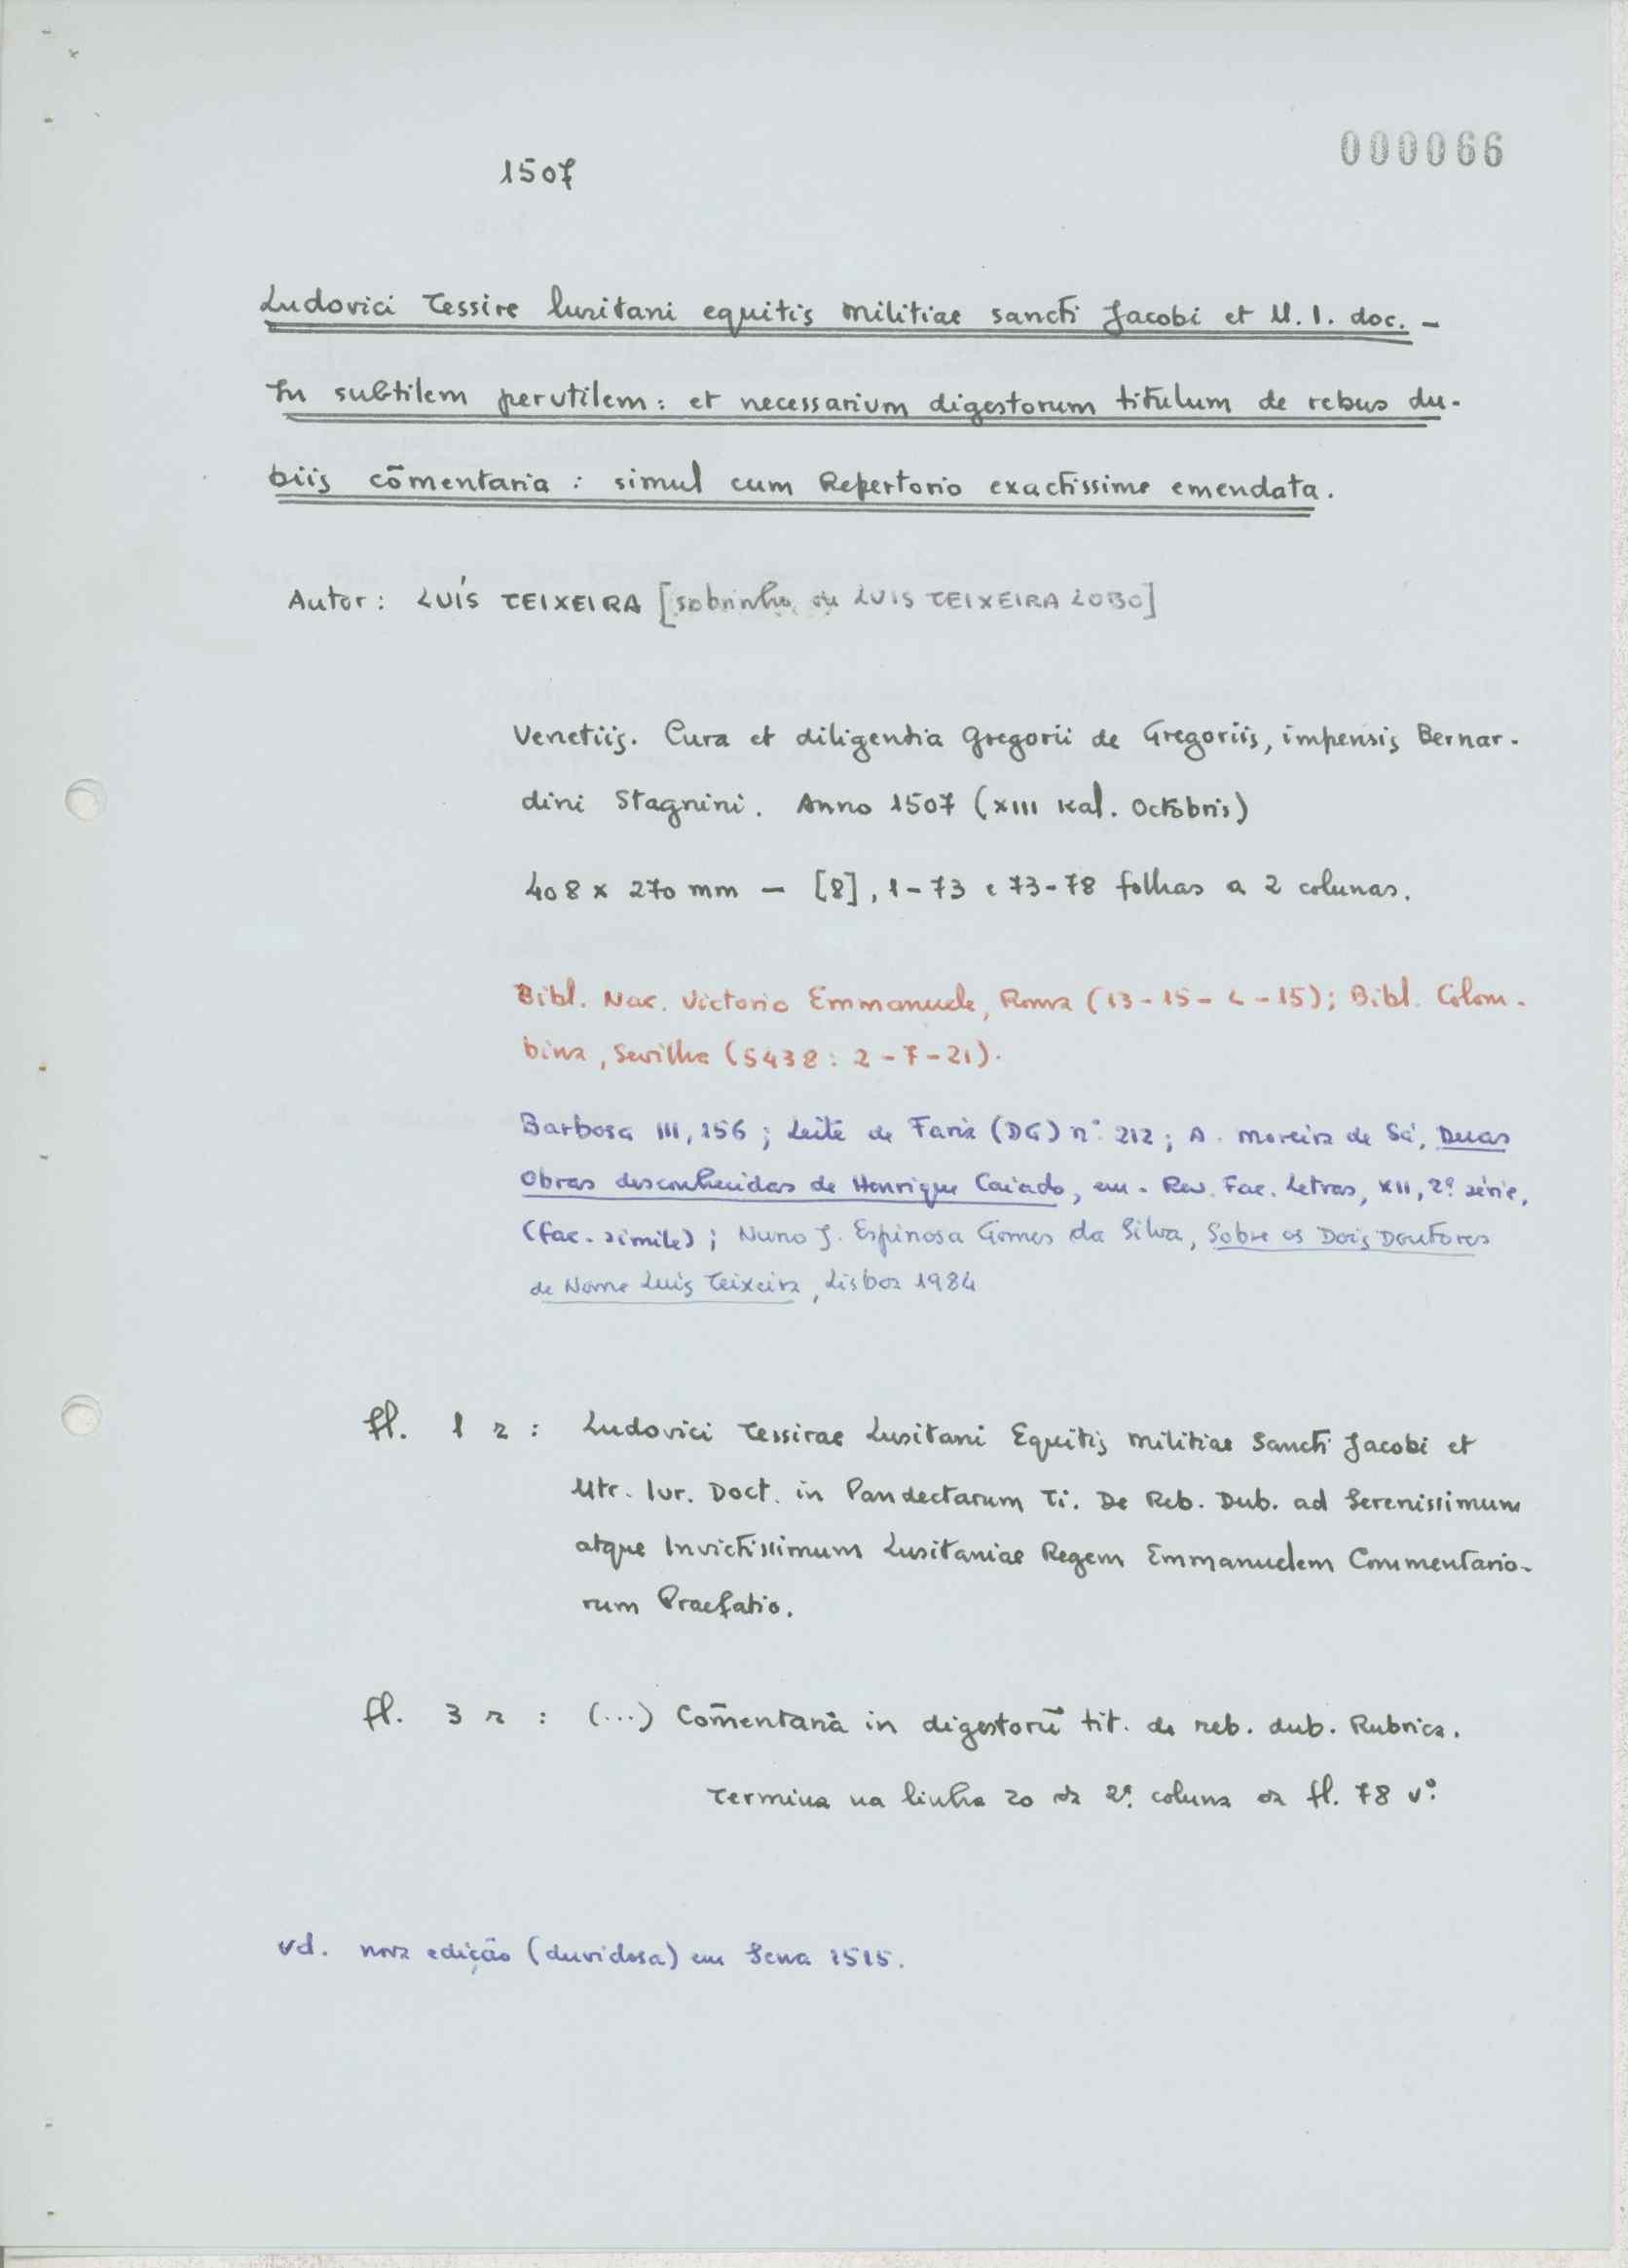 000066
1507
Ludovici Tessire lusitani equitis militiae sancti Jacobi et U. I. doc. -
In subtilem perutilem: et necessarium digestorum titulum de rebus du-
biis cōmentaria: simul cum Repertorio exactissime emendata.
Autor: LUÍS TEIXEIRA [sobrinho, ou LUIS TEIXEIRA LOBO]
Venetiis. Cura et diligentia Gregorii de Gregoriis, impensis Bernar-
dini Stagnini. Anno 1507 (XIII Kal. Octobris)
408 x 270 mm — [8], 1-73 e 73-78 folhas a 2 colunas.
Bibl. Nac. Victorio Emmanuele, Roma (13-15-L-15); Bibl. Colom-
bina, Sevilha (5438: 2-7-21).
Barbosa III, 156; Leite de Faria (DG) nº 212; A. Moreira de Sá, Duas
Obras desconhecidas de Henrique Caiado, em. Rev. Fac. Letras, XII, 2ª série,
(fac. simile); Nuno J. Espinosa Gomes da Silva, Sobre os Dois Doutores
de Nome Luís Teixeira, Lisboa 1984
fl. 1 r: Ludovici Tessirae Lusitani Equitis Militiae Sancti Jacobi et
Utr. Iur. Doct. in Pandectarum Ti. De Reb. Dub. ad Serenissimum
atque Invictissimum Lusitaniae Regem Emmanuelem Commentario-
rum Praefatio.
fl. 3 r: (...) Cōmentaria in digestorū tit. de reb. dub. Rubrica.
Termina na linha 20 da 2ª coluna da fl. 78 vº
vd. nova edição (duvidosa) em Sena 1515.